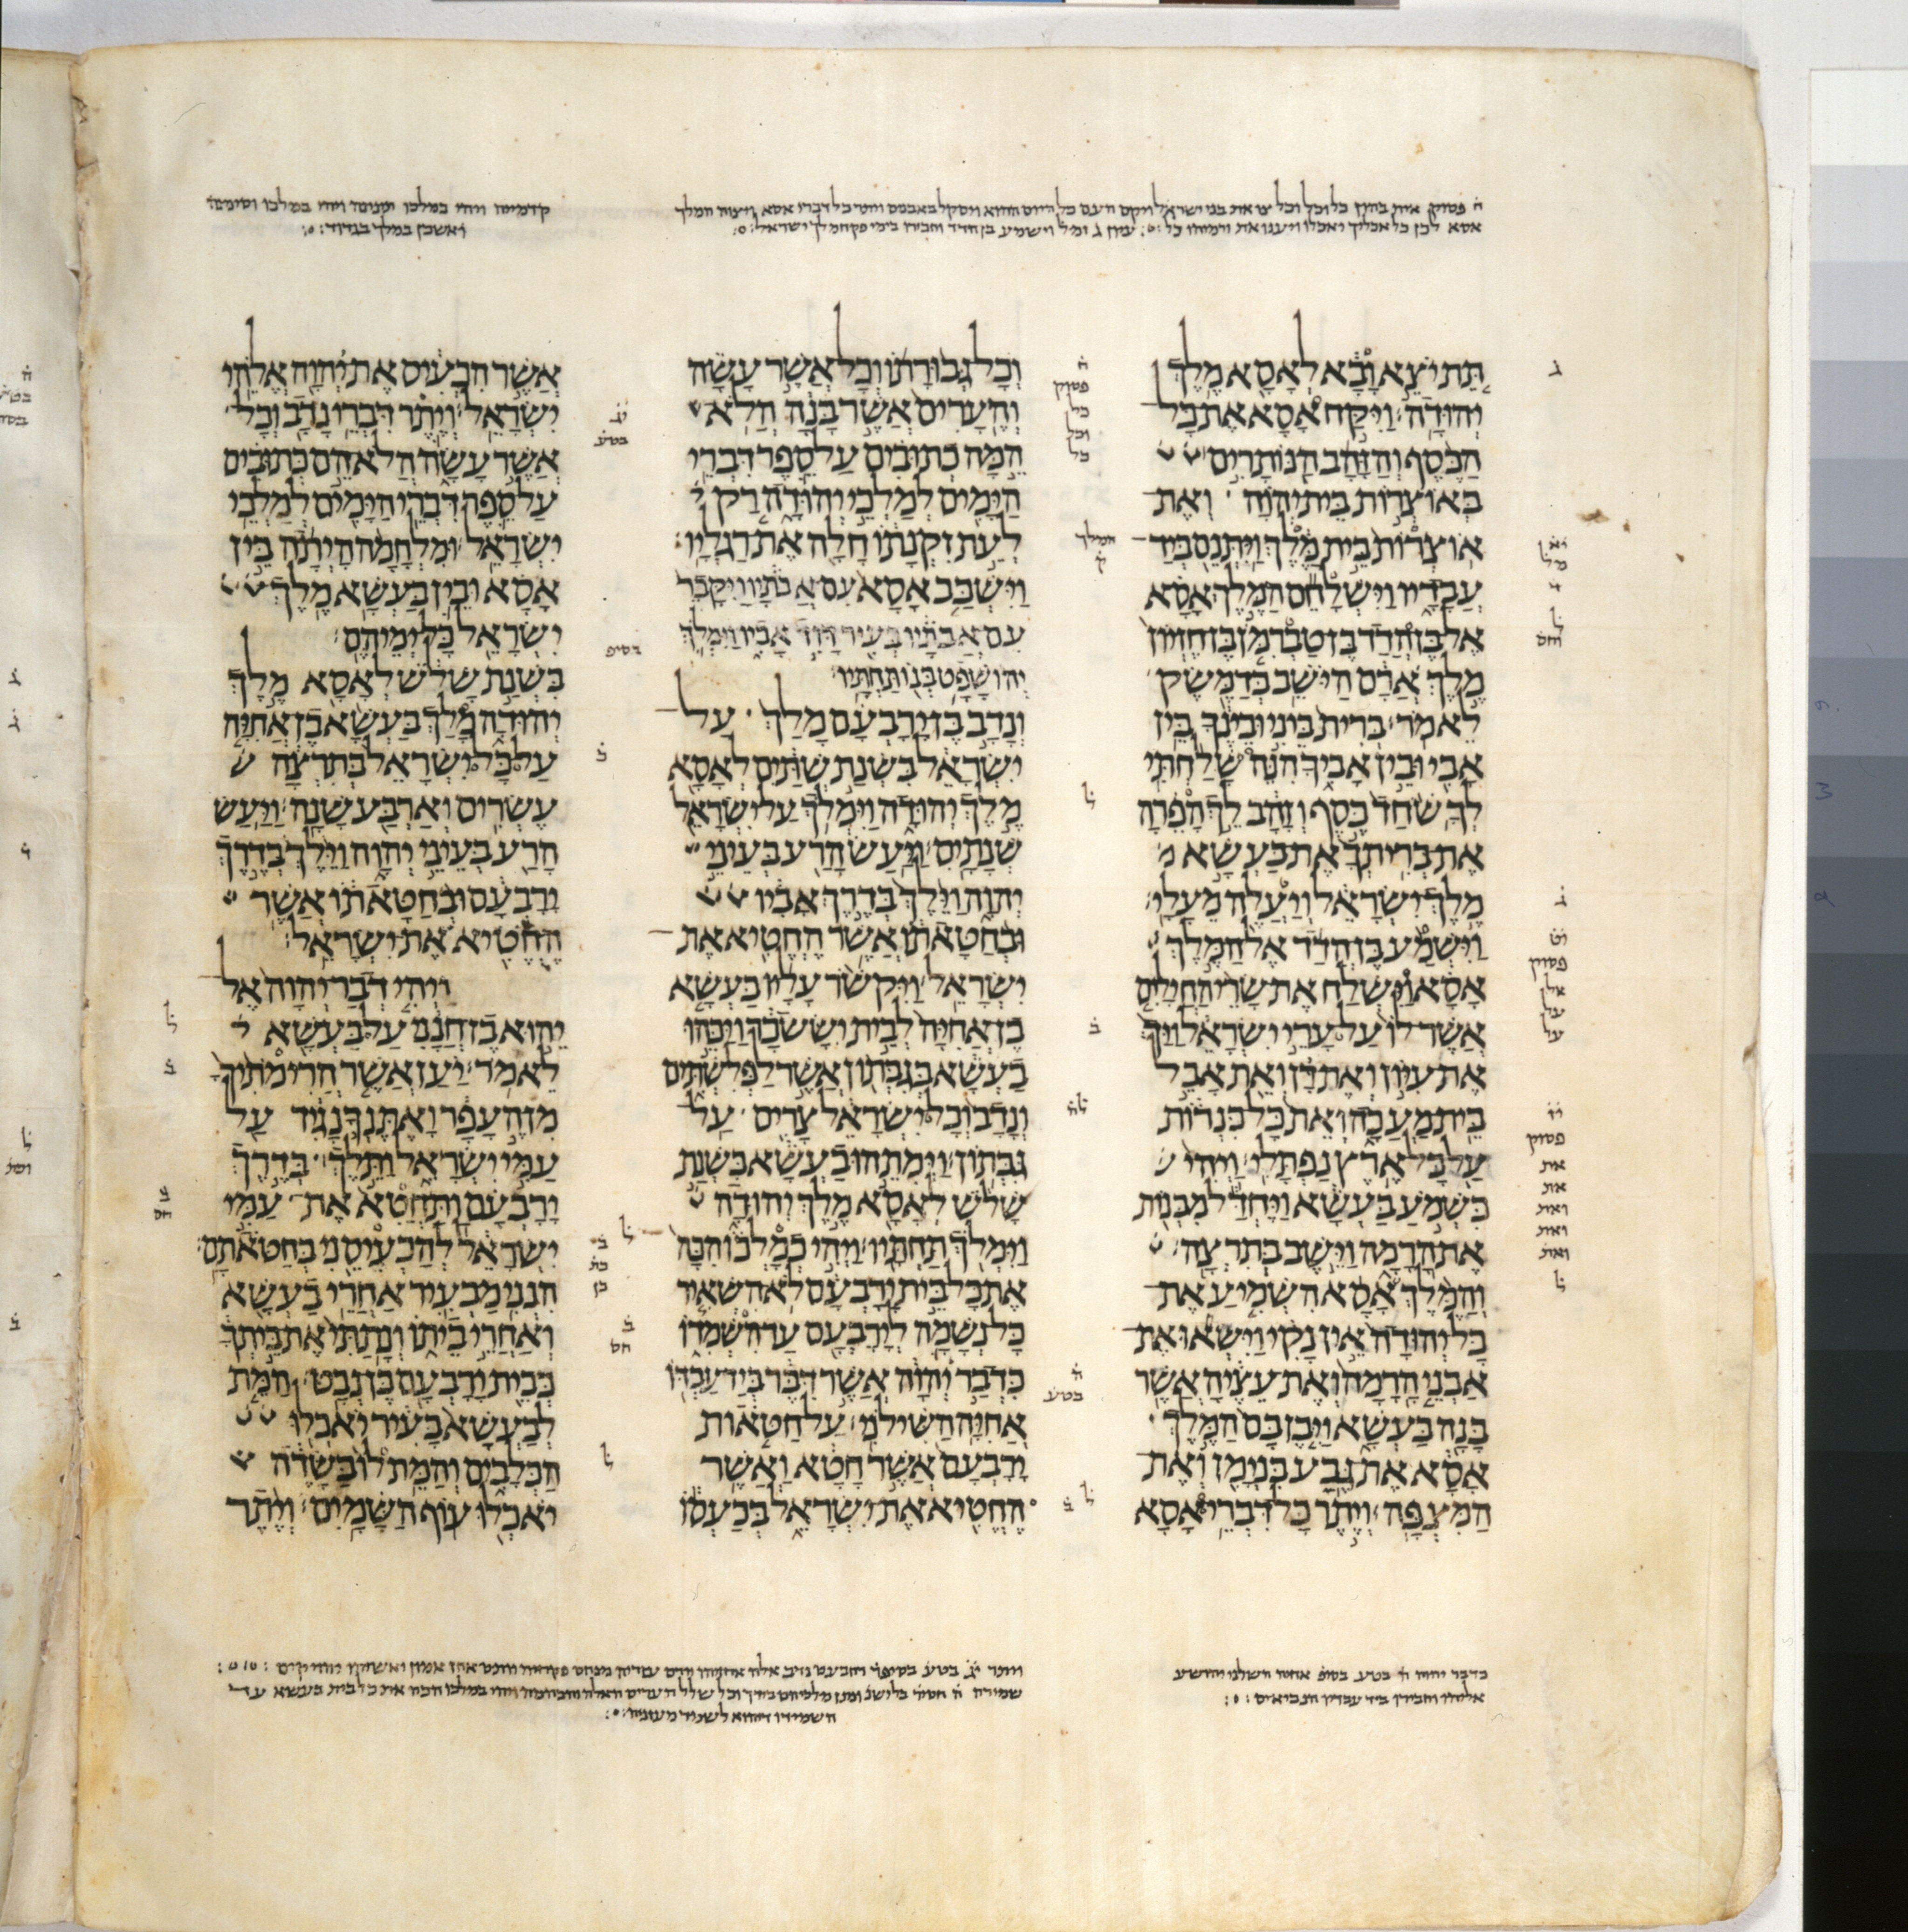 ה פסוק אית בהון כל וכל וכל צו את בני ישראל ויקם העם כל היום ההוא ויסקל באבנים ויתר כל דברי אסא ויצוה המלך
אסא לכן כל אכליך יאכלו
קדמיהו ויהי במלכו תנינה ויהי במלכו וסימנה
ואשכן במלך בגדוד
תת יצא ובא לאסא מלך
יהודה ויקח אסא את כל
הכסף והזהב הנותרים
באוצרות בית יהוה ואת
אוצרות בית מלך ויתנם ביד
עבדיו וישלחם המלך אסא
אל בן הדד בן טברמן בן חזיון
מלך ארם הישב בדמשק
לאמר ברית ביני ובינך בין
אבי ובין אביך הנה שלחתי
לך שחד כסף וזהב לך הפרה
את בריתך את בעשא
מלך ישראל ויעלה מעלי
וישמע בן הדד אל המלך
אסא וישלח את שרי החילים
אשר לו על ערי ישראל ויך
את עיון ואת דן ואת אבל
בית מעכה ואת כל כנרות
על כל ארץ נפתלי ויהי
כשמע בעשא ויחדל מבנות
את הרמה וישב בתרצה
והמלך אסא השמיע את
כל יהודה אין נקי וישאו את
אבני הרמה ואת עציה אשר
בנה בעשא ויבן בם המלך
אסא את גבע בנימן ואת
המצפה ויתר כל דברי אסא
וכל גבורתו וכל אשר עשה
והערים אשר בנה הלא
המה כתובים על ספר דברי
הימים למלכי יהודה רק
לעת זקנתו חלה את רגליו
וישכב אסא עם אבתיו ויקבר
עם אבתיו בעיר דוד אביו וימלך
יהושפט בנו תחתיו
ונדב בן ירבעם מלך על
ישראל בשנת שתים לאסא
מלך יהודה וימלך על ישראל
שנתים ויעש הרע בעיני
יהוה וילך בדרך אביו
ובחטאתו אשר החטיא את
ישראל ויקשר עליו בעשא
בן אחיה לבית יששכר ויכהו
בעשא בגבתון אשר לפלשתים
ונדב וכל ישראל צרים על
גבתון וימתהו בעשא בשנת
שלש לאסא מלך יהודה
וימלך תחתיו ויהי כמלכו הכה
את כל בית ירבעם לא השאיר
כל נשמה לירבעם עד השמדו
כדבר יהוה אשר דבר ביד עבדו
אחיה השילני על חטאות
ירבעם אשר חטא ואשר
החטיא את ישראל בכעסו
אשר הכעיס את יהוה אלהי
ישראל ויתר דברי נדב וכל
אשר עשה הלא הם כתובים
על ספר דברי הימים למלכי
ישראל ומלחמה היתה בין
אסא ובין בעשא מלך
ישראל כל ימיהם
בשנת שלש לאסא מלך
יהודה מלך בעשא בן אחיה
על כל ישראל בתרצה
עשרים וארבע שנה ויעש
הרע בעיני יהוה וילך בדרך
ירבעם ובחטאתו אשר
החטיא את ישראל
ויהי דבר יהוה אל
יהוא בן חנני על בעשא
לאמר יען אשר הרימתיך
מן העפר ואתנך נגיד על
עמי ישראל ותלך בדרך
ירבעם ותחטא את עמי
ישראל להכעיסני בחטאתם
הנני מבעיר אחרי בעשא
ואחרי ביתו ונתתי את ביתך
כבית ירבעם בן נבט המת
לבעשא בעיר יאכלו
הכלבים והמת לו בשדה
יאכלו עוף השמים ויתר
ה
פסוק
כל
וכל
כל
המלך
ק
פסוק
אל
על
על
פסוק
את
את
ואת
ואת
ואת
כדבר יהוה ה בטע בסיפ אחיה השלני יהושע
אליהו וחבירו ביד עבדיו הנביאים